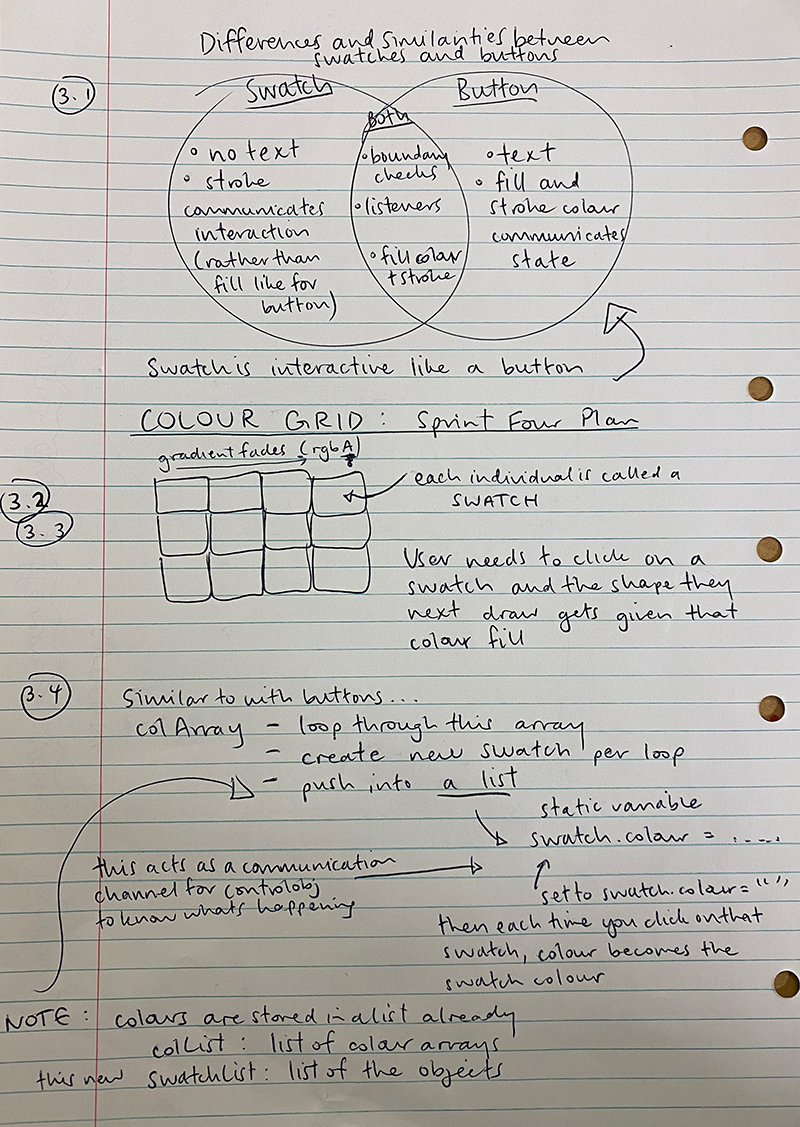 Differences and similarities between
swatches and buttons
3.1
Swatch
Both
Button
• no text
• stroke
communicates
interaction
(rather than
fill like for
button)
• boundary
checks
• listeners
• fill colour
+ stroke
• text
• fill and
stroke colour
communicates
state
Swatch is interactive like a button
COLOUR GRID: Sprint Four Plan
gradient fades (rgbA)
?
each individual is called a
SWATCH
3.2
3.3
User needs to click on a
swatch and the shape they
next draw gets given that
colour fill
3.4
Similar to with buttons...
colArray - loop through this array
- create new swatch per loop
- push into a list
static variable
swatch.colour = .....
this acts as a communication
channel for controlobj
to know whats happening
set to swatch.colour = " "
then each time you click on that
swatch, colour becomes the
swatch colour
NOTE: colours are stored in a list already
colList: list of colour arrays
this new swatchList: list of the objects